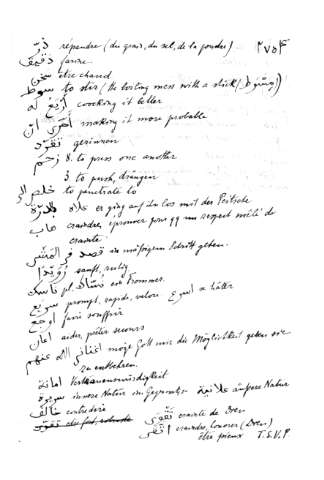 ذرّ répendre (du grain, du sel, de la poudre) ٢٧٥٤
دقيق farine
سخن être chaud
سوط to stir (the boiling mess with a stick)
أرفع له cooking it better
أحرى ان making it more probable
gerinnen
زحم 8. to press one another
3 to push, drängen
خلص الى to penetrate to
علاه بالدرّة er ging auf ihn los mit der Peitsche
هاب craindre, éprouver pour qq un respect mêlé de
crainte
قصد في المشى in mässigem Schritt gehen.
رُوَيْدًا sanft, ruhig
ناسك pl. نسّاك ein Frommer.
سريع prompt, rapide, valore se hâter
اوجع faire souffrir
اعان aider, prêter secours
اغنانى الله عنهم möge Gott mir die Möglichkeit geben sie
zu entbehren.
امانة Vertrauenswürdigkeit
سريرة innere Natur im Gegensatz علانية äussere Natur
خالف contredire
تقوى crainte de Dieu
اتقى craindre, honorer (Dieu)
être pieux T.S.V.P